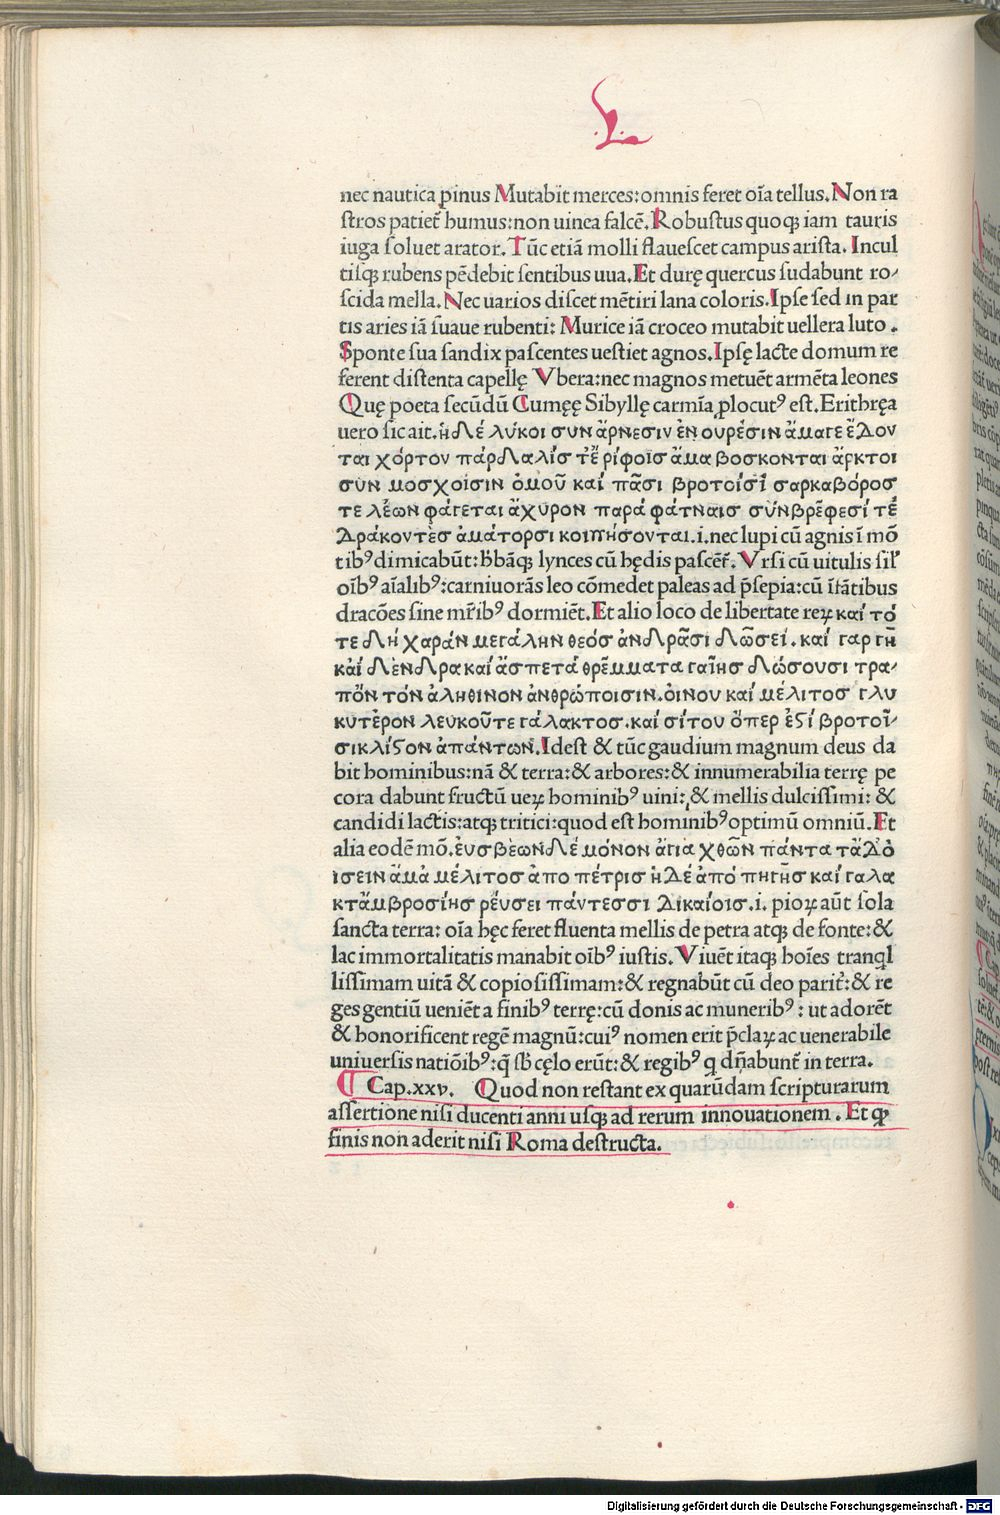 L
nec nautica pinus Mutabit merces:omnis feret oīa tellus.Non ra
stros patiet᷑ humus:non uinea falcē.Robustus quoqꝫ iam tauris
iuga soluet arator.Tūc etiā molli flauescet campus arista. Incul
tisqꝫ rubens pēdebit sentibus uua.Et durę quercus sudabunt ro/
scida mella.Nec uarios discet mētiri lana coloris.Ipse sed in par
tis aries iā suaue rubenti: Murice iā croceo mutabit uellera luto.
Sponte sua sandix pascentes uestiet agnos.Ipsę lacte domum re
ferent distenta capellę Vbera:nec magnos metuēt armēta leones
Quę poeta secūdū Cumęę Sibyllę carmīa ꝓlocutꝰ est.Erithręa
uero sic ait.ἡΔέ λύκοι συν ἄρνεσιν ἐν ουρέσιν ἄμαγε ἔΔον
ται χόρτον πάρΔαλίσ τἔ ρίφοισ ἄμα βοσκονται ἄρκτοι
σὺν μοσχοίσιν ὁμοῦ καί πᾶσι βροτοίσἵ σαρκαβόροσ
τε λἔων φάγεται ἄχυρον παρά φάτναισ σύνβρἔφεσί τἔ
Δράκοντὲσ ἀμάτορσι κοιμήσονται.i.nec lupi cū agnis ī mō
tibꝰ dimicabūt:hꝰbāqꝫ lynces cū hędis pascēt᷑.Vrsi cū uitulis sil᷑
oībꝰ aīalibꝰ:carniuorās leo cōmedet paleas ad p̄sepia:cū īfātibus
dracōes sine mr̄ibꝰ dormiēt.Et alio loco de libertate reꝝ καί τό
τε Δἠ χαράν μεγάλην θεόσ ἀνΔρᾶσι Δῶσεί.καί γαρ γῆ
κἀί ΔένΔρα καί ἄσπετά θρἔμματα γαίησ Δώσουσι τρα/
πὄν τόν ἀληθινον ἀνθρώποισιν.ὀινου καί μέλιτοσ γλυ
κυτἔρον λευκοῦτε γάλακτοσ.καί σίτου ὅπερ ἐϛί βροτοῖ/
σικλίϛον ἀπάντων.Idest & tūc gaudium magnum deus da
bit hominibus:nā & terra:& arbores:& innumerabilia terrę pe
cora dabunt fructū ueꝝ hominibꝰ uini:& mellis dulcissimi: &
candidi lactis:atqꝫ tritici:quod est hominibꝰ optimū omniū.Et
alia eodē mō.ἐυσβἔωνΔέ μόνον ἀγια χθῶν πάντα τἄΔὀ
ισειν ἄμἀ μέλιτοσ ἀπο πέτρισ ἠΔἔ ἀπό πηγῆσ καί γαλα
κτἄμβροσίησ ρἔυσει πάντεσσι Δικαίοισ.i. pioꝝ aūt sola
sancta terra: oīa hęc feret fluenta mellis de petra atqꝫ de fonte:&
lac immortalitatis manabit oībꝰ iustis.Viuēt itaqꝫ hoīes tranql
lissimam uitā & copiosissimam:& regnabūt cū deo parit᷑:& re
ges gentiū ueniēt a finibꝰ terrę:cū donis ac muneribꝰ: ut adorēt
& honorificent regē magnū:cuiꝰ nomen erit p̄claꝝ ac uenerabile
uniuersis natiōibꝰ:q̄ sb᷑ cęlo erūt:& regibꝰ q dn̄abunt᷑ in terra.
¶ Cap.xxv. Quod non restant ex quarūdam scripturarum
assertione nisi ducenti anni usqꝫ ad rerum innouationem. Et qꝫ
finis non aderit nisi Roma destructa.
Digitalisierung gefördert durch die Deutsche Forschungsgemeinschaft - DFG